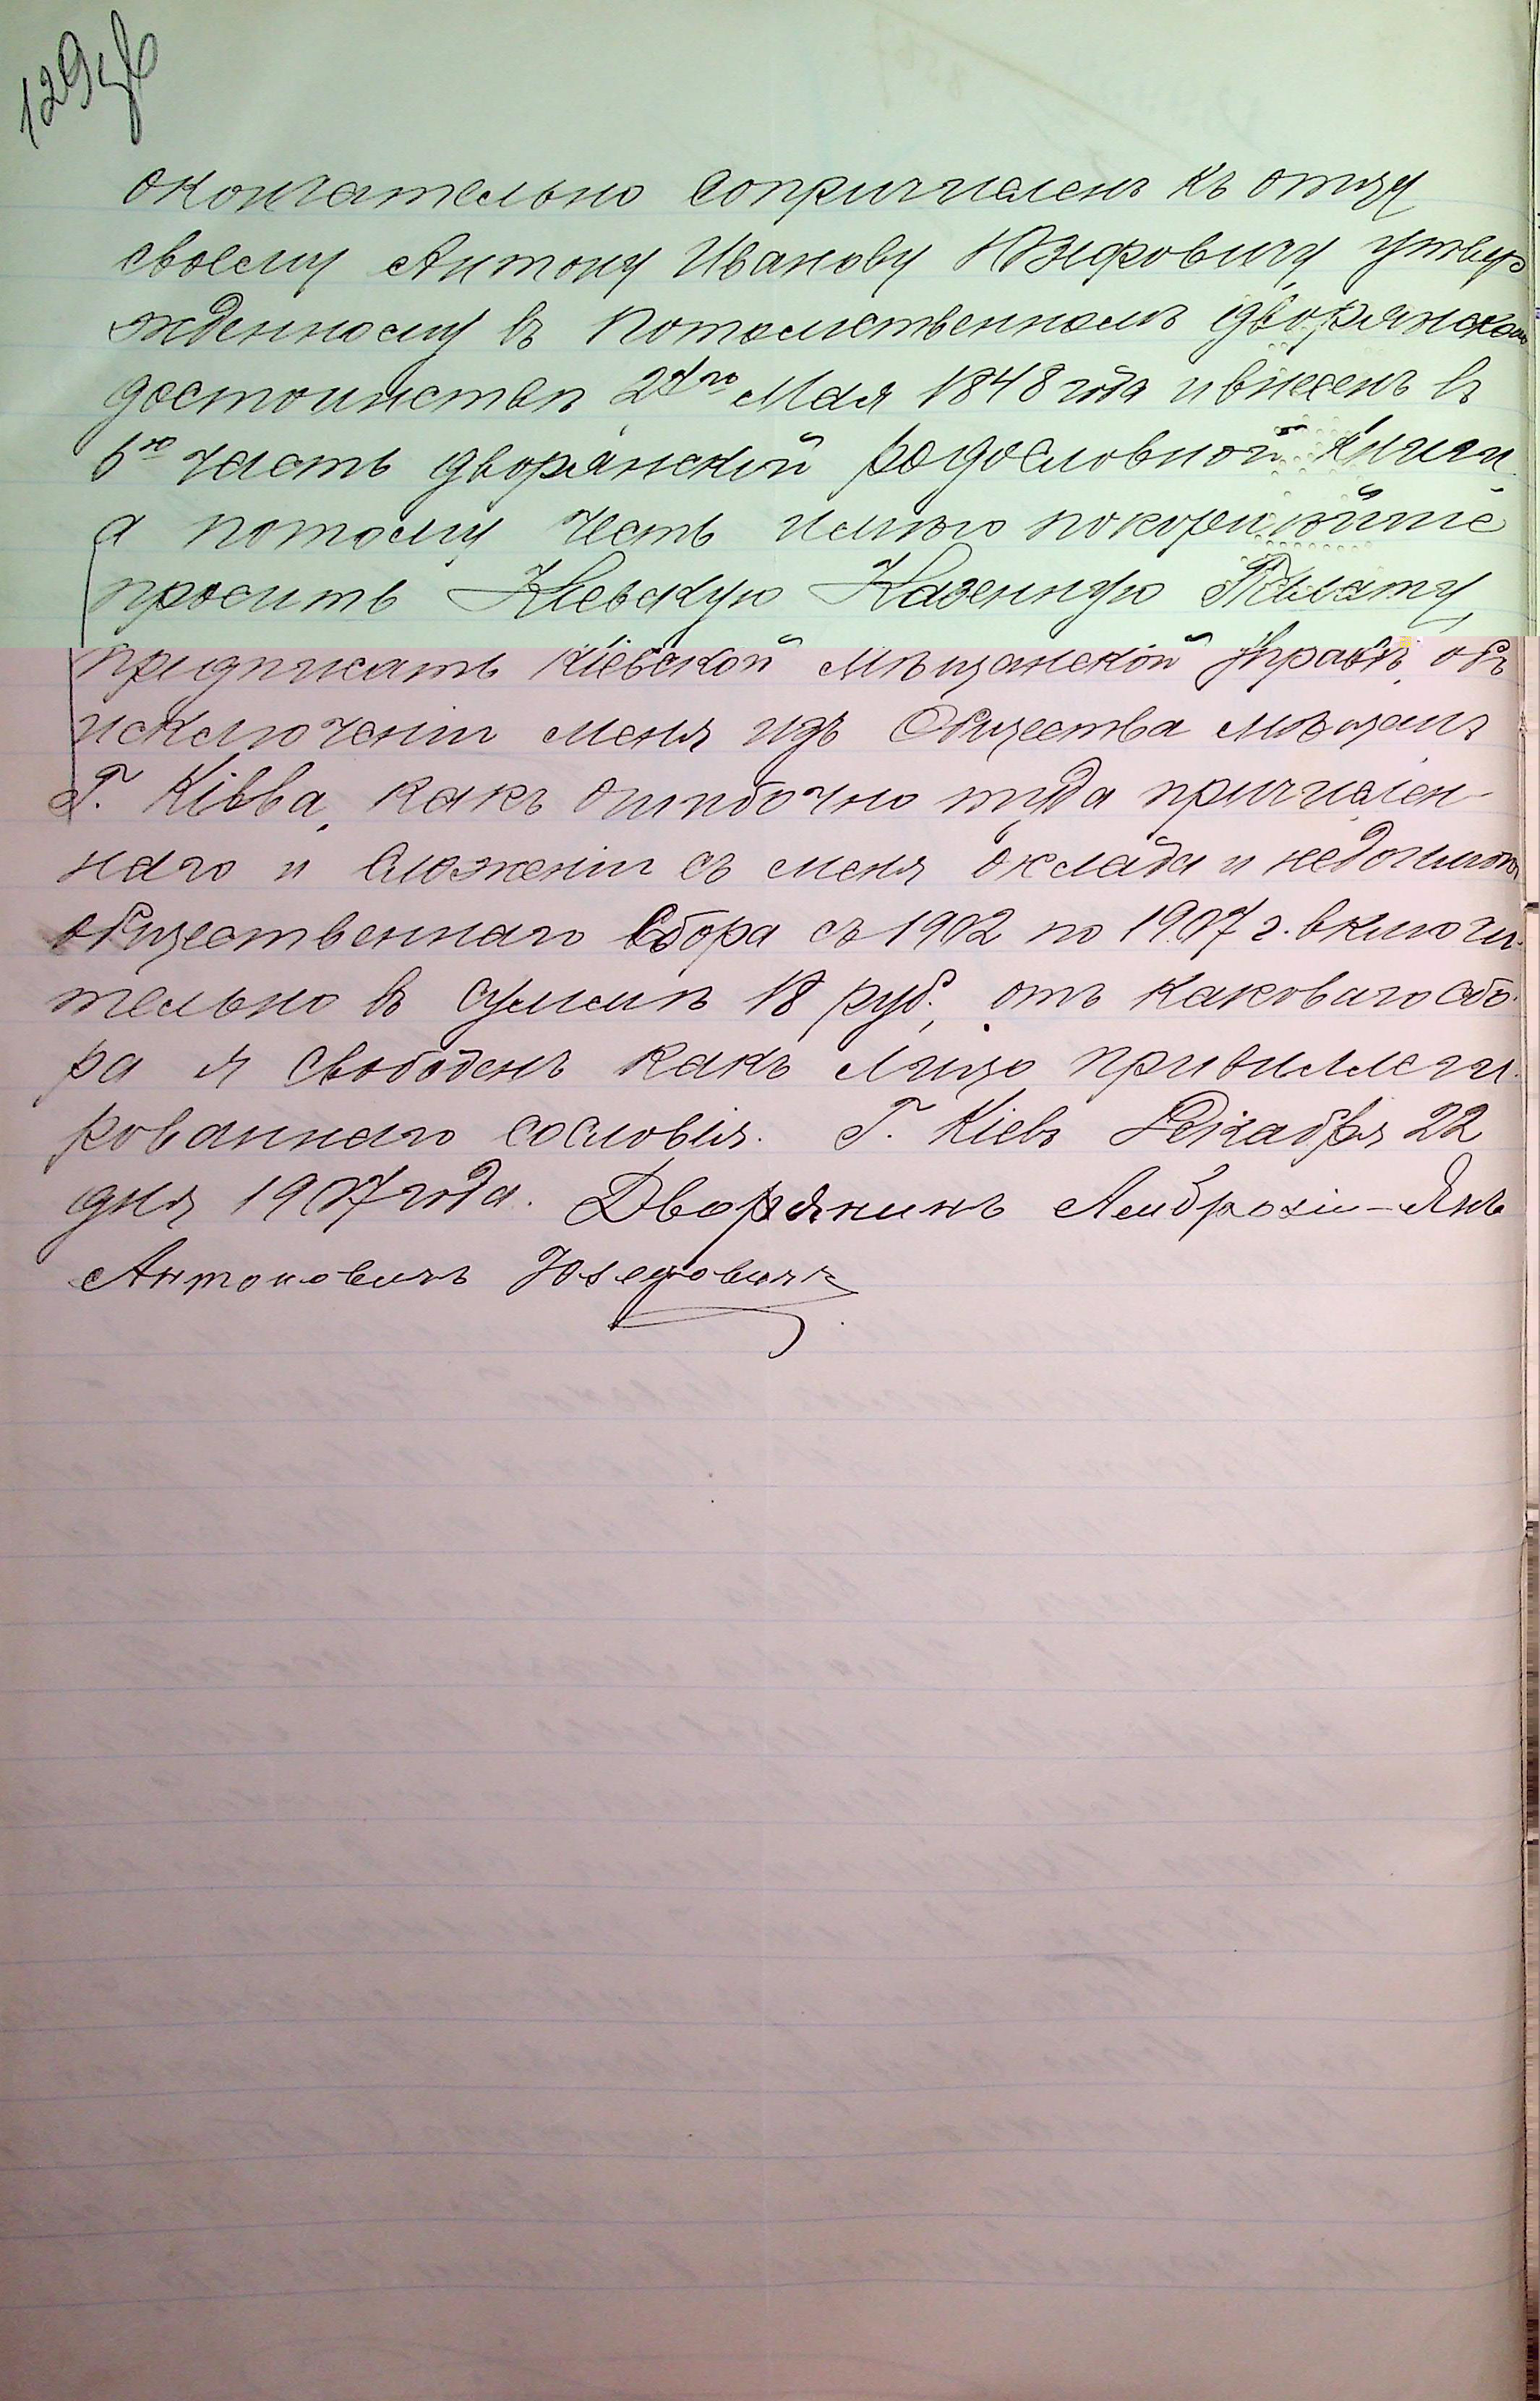 129 об
окончательно сопричисленъ къ отцу
своему Антону Иванову Юзефовичу, утвер
жденному въ потомственномъ дворянском
достоинствѣ 24го Мая 1848 года и внесенъ въ
6ю часть дворянской родословной книги,
а потому честь имѣю покорнѣйше
просить Кіевскую Казенную Палату,
предписать Кіевской Мѣщанской Управѣ, объ
исключеніи меня изъ Общества мѣщанъ
Г. Кіева, какъ ошибочно туда причислен-
наго и сложеніи съ меня оклада и недоимки
общественнаго сбора съ 1902 по 1907 г. включи-
тельно въ суммѣ 18 руб., отъ каковаго сбо-
ра я свободенъ какъ лицо привиллеги-
рованнаго сословія. Г. Кіевъ Декабря 22
дня 1907 года. Дворянинъ Амброзій-Янъ
Антоновичъ Юзефовичъ